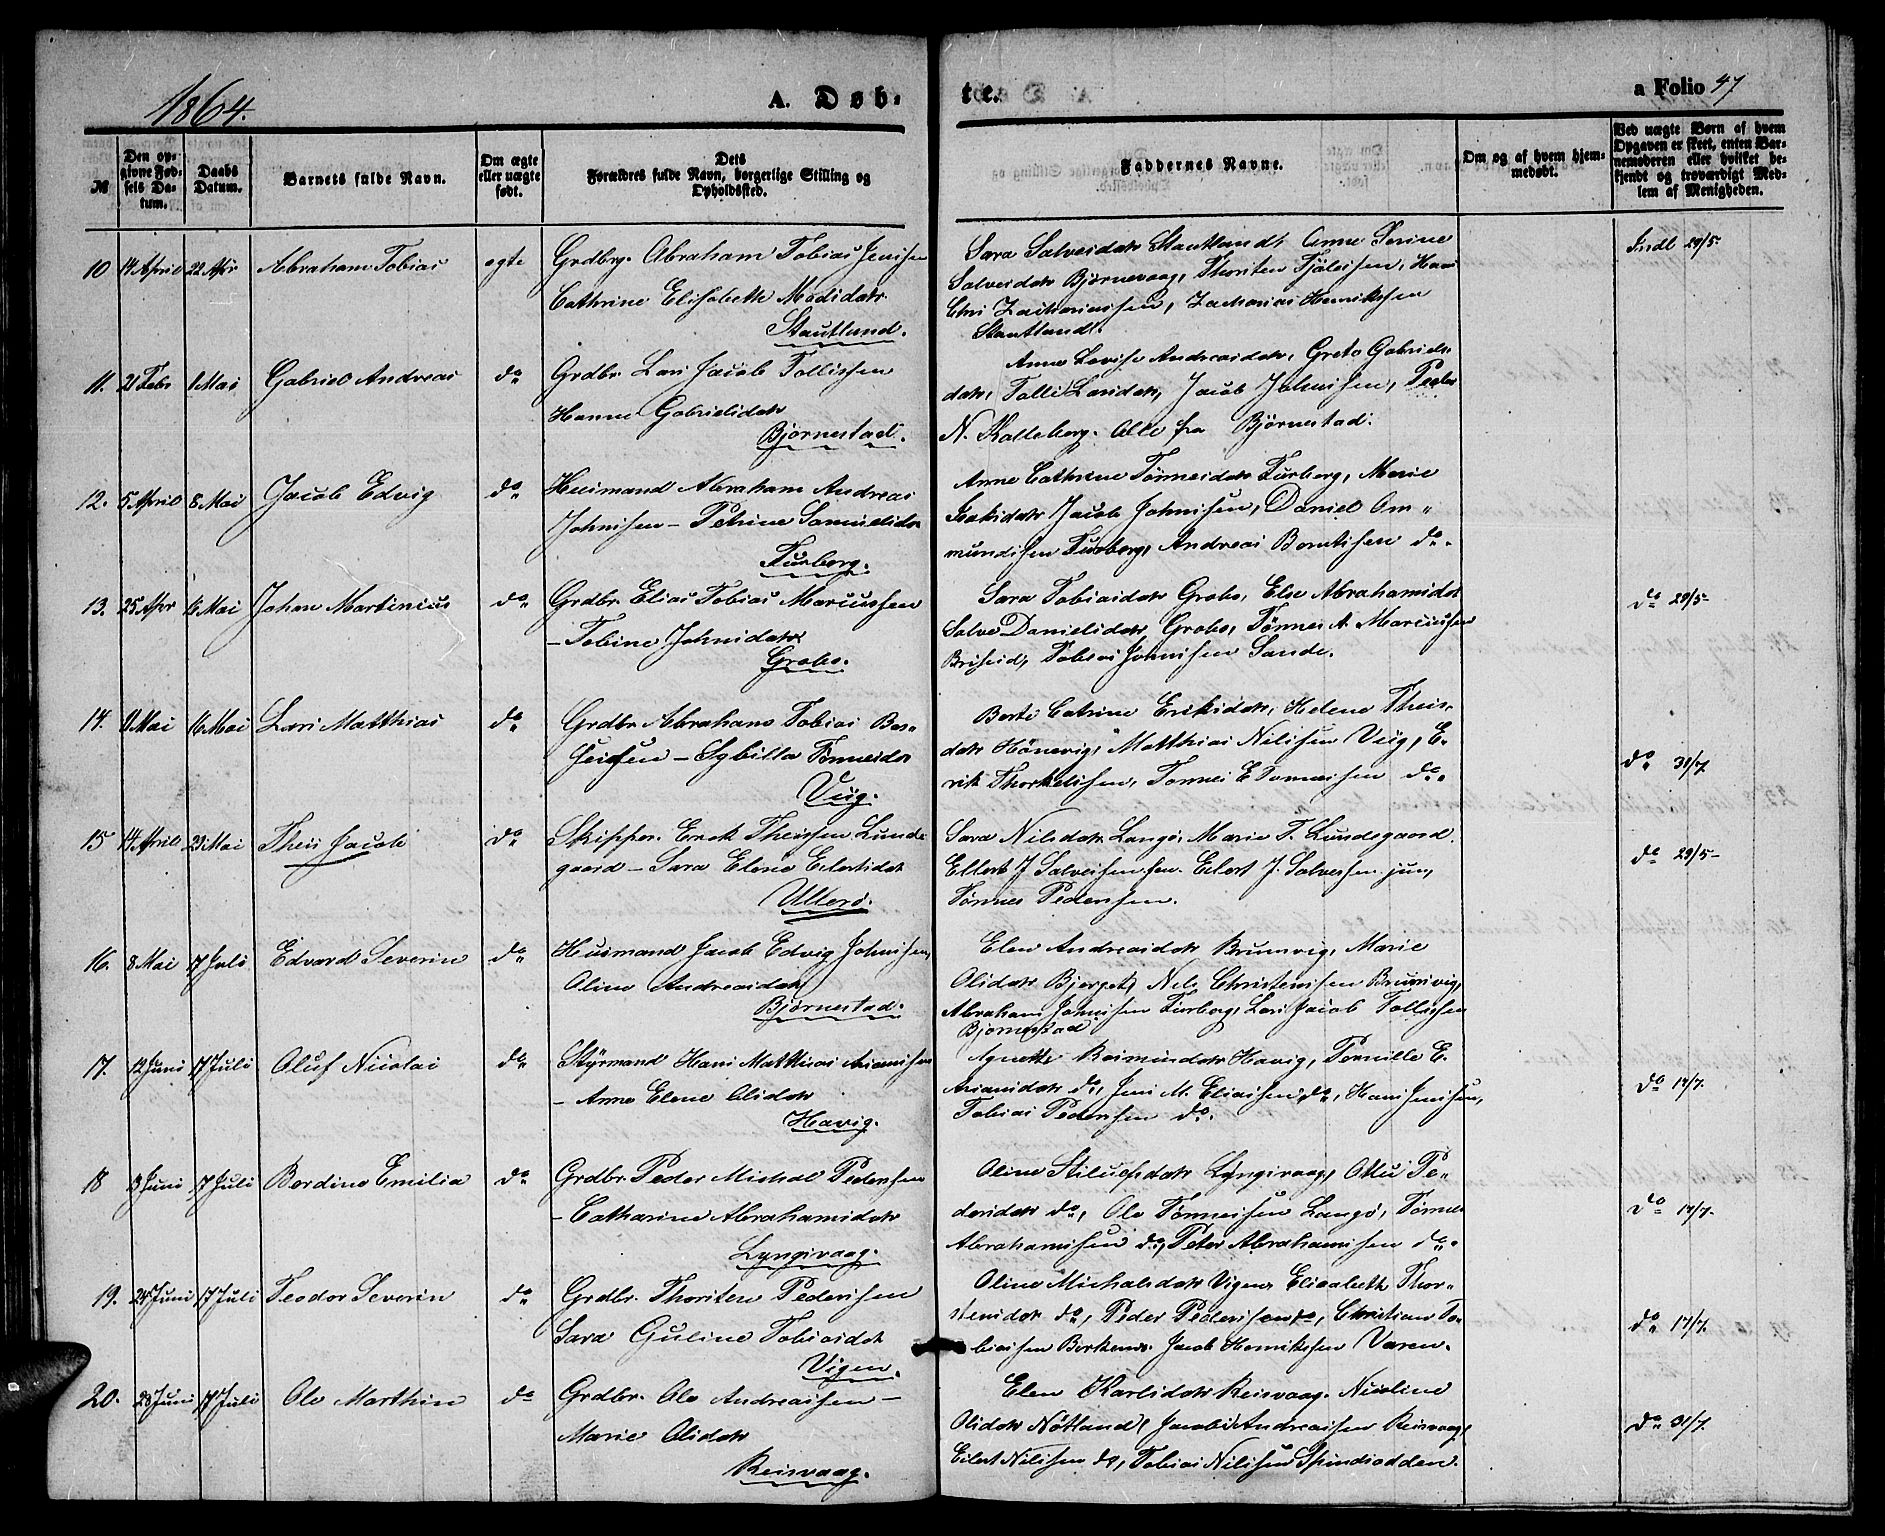 1864.
A. Døb-
te.
a Folio 47
№
Den op-
givne Fød-
sels Da-
tum.
Daabs
Datum.
Barnets fulde Navn.
Om ægte
eller uægte
født.
Dets
Forældres fulde Navn, borgerlige Stilling og
Opholdssted.
Faddernes Navne.
Om og af hvem hjem-
medøbt.
Ved uægte Børn af hvem
Opgaven er skeet, enten Bar-
nemoderen eller hvilket be-
kjendt og troværdigt Med-
lem af Menigheden.
10 14 April 22 Apr Abraham Tobias egte Grdbrg. Abraham Tobias Jensen
Cathrine Elisabeth Madsdatr
Stautland.
Sara Salvesdatr Stautland, Anne Serine
Salvesdatr Bjørnevaag, Thorsten Fjølsen, Hans
Chri Zachariassen, Zacharias Henriksen
Stautland.
Indl 29/5-
11. 21 Febr 1 Mai Gabriel Andreas do Grdbr. Lars Jacob Tollissen
Hanne Gabrielsdatr
Bjørnestad.
Anne Lovise Andreasdatr, Grete Gabriels-
datr, Tolli Larsdatr, Jacob Johnsen, Peder
N. Kalleberg. Alle fra Bjørnestad.
12. 5 April 8 Mai Jacob Edvig do Husmand Abraham Andreas
Johnsen - Petrine Samuelsdtr
Furberg.
Anne Cathrine Tønnesdatr Furberg, Marie
Isaksdatr Jacob Johnsen, Daniel Om-
mundsen Furberg, Andreas Berntsen do.
13. 25 Apr 16 Mai Johan Martinius do Grdbr. Elias Tobias Marcussen
- Tobine Johnsdatr
Grobo.
Sara Tobiasdatr Grobo, Else Abrahamsdtr
Salve Danielsdatr Grobo, Tønnes A. Marcussen
Briseid, Tobias Johnsen Sande.
do 29/5-
14. 11 Mai 16 Mai Lars Matthias do Grdbr. Abraham Tobias Ber-
- Sybilla Tønnesdtr
Viig.
Berte Catrine Eriksdatr, Helene Theis-
datr Hønevig, Matthias Nilssen Viig, E-
rik Thorkelsen, Tønnes E Tønnessen do.
do 31/7.
15 14 April 23 Mai Theis Jacob do Skipper Erick Theissen Lunde-
gaard - Sara Elene Eilertsdat
Ullerø.
Sara Nilsdatr Langø, Marie T. Lundegaard.
Ellert J Salvesen sen. Eilert J. Salvesen jun,
Tønnes Pedersen.
do 29/5-
16. 8 Mai 17 Juli Edvard Severin do Husmand Jacob Edvig Johnsen,
Oline Andreasdatr
Bjørnestad.
Elen Andreasdatr Brunvig, Marie
Olsdatr Bjerget, Nils Christensen Brunvig,
Abraham Johnsen Furberg, Lars Jacob Tollissen
Bjørnestad
17. 12 Juni 17 Juli Oluf Nicolai do Styrmand Hans Matthias Ariansen
- Anne Elene Olsdatr
Havig.
Agnette Rasmusdatr Havig, Pernille E.
Ariansdatr do, Jens M. Eliassen, do, Hans Jensen,
Tobias Pedersen do.
do 17/7.
18 3 Juni 17 Juli Berdine Emilia do Grdbr. Peder Michal Pedersen
- Catharine Abrahamsdatr
Lyngsvaag.
Oline Lyngsvaag, Pe-
dersdatr do, Ole Tønnessen Langø, Tønnes
Abrahamsen do, Peter Abrahamsen do.
do 17/7.
19. 24 Juni 17 Juli Teodor Severin do Grdbr. Thorsten Pedersen
Sara Guline Tobiasdtr
Vigen.
Oline Michalsdatr Vigen, Elisabeth Thor-
stensdatr do, Peder Pedersen do, Christian To-
biassen Birkenes. Jacob Henriksen Varen.
do 17/7.
20. 28 Juni 17 Juli Ole Marthin do Grdbr. Ole Andreassen -
Marie Olsdatr
Reisvaag.
Elen Karlsdatr Reisvaag. Nicoline
Olsdatr Nøtland, Jacob Andreassen Reisvaag,
Eilert Nilssen do, Tobias Nilssen Spindsodden.
do 31/7.